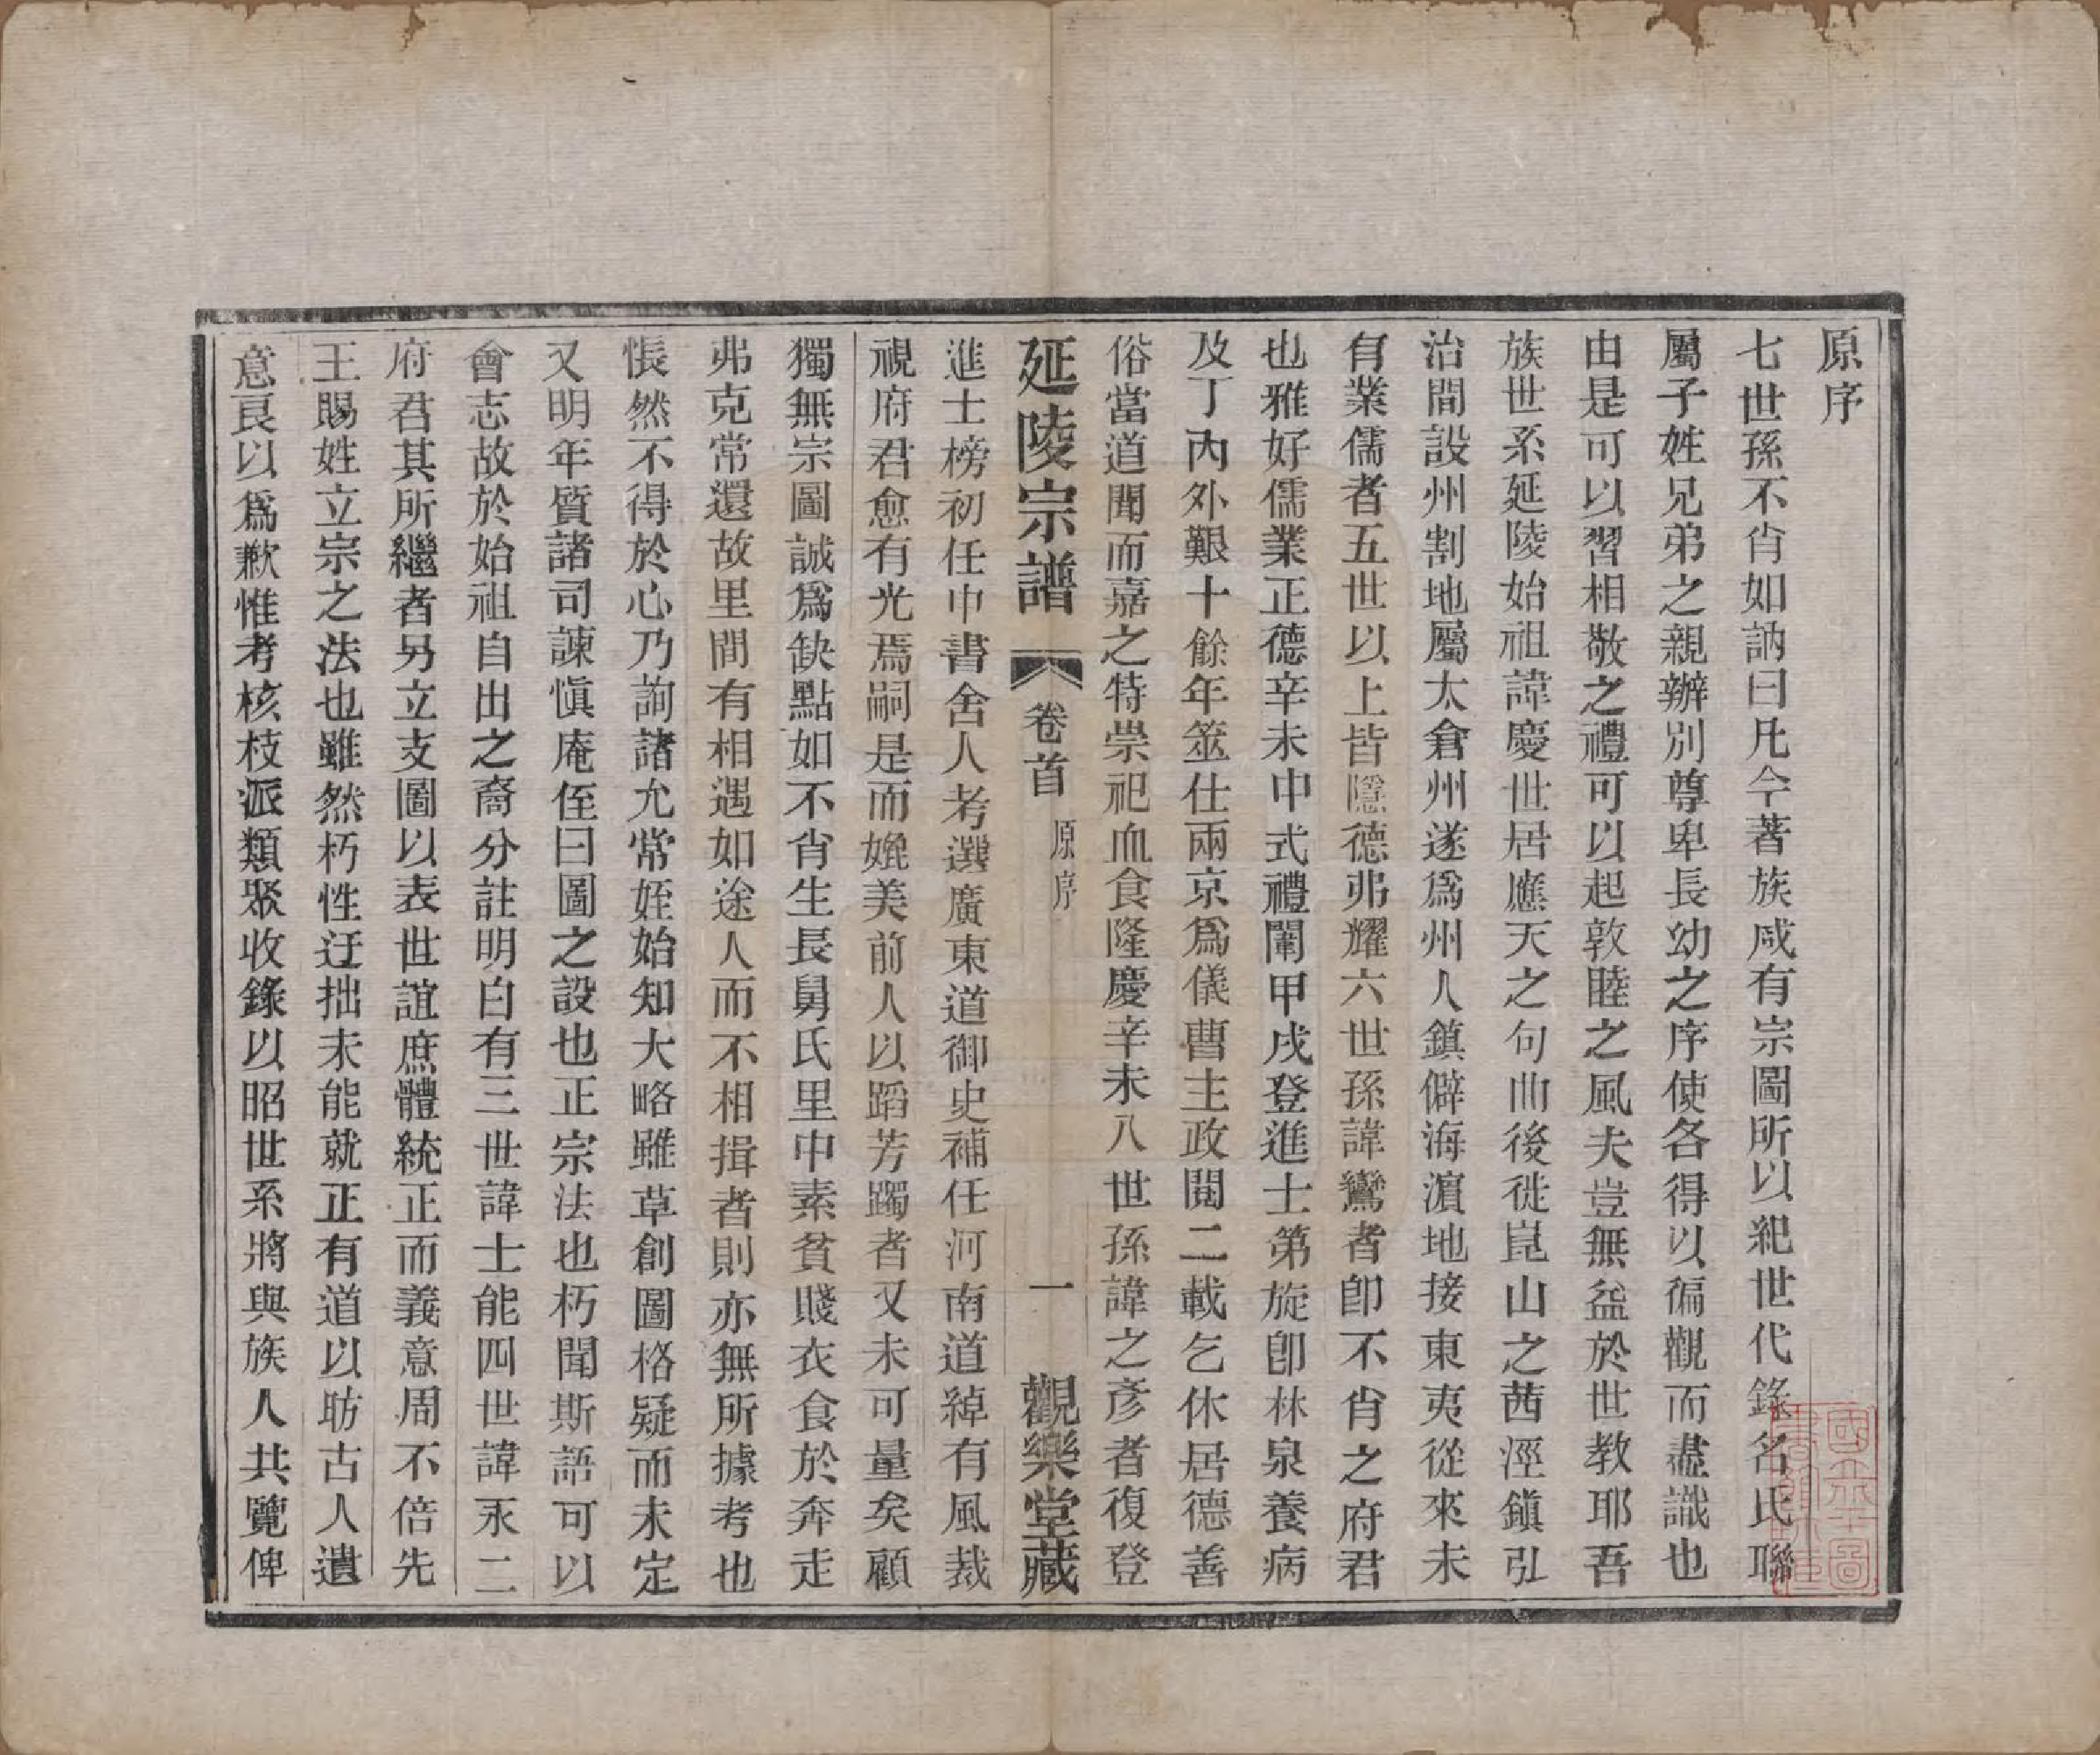 原序
七世孫不肖如訥曰凡今著族咸有宗圖所以紀世代錄名氏聯
屬子姓兄弟之親辦別尊卑長幼之序使各得以徧觀而盡識也
由是可以習相敬之禮可以起敦睦之風夫豈無益於世教耶吾
族世系延陵始祖諱慶世居應天之句曲後徙崑山之茜涇鎮弘
治間設州割地屬太倉州遂爲州人鎮僻海濵地接東夷從來未
有業儒者五世以上皆隱德弗耀六世孫諱鸞者卽不肖之府君
也雅好儒業正德辛未中式禮闈甲戌登進士第旋卽林泉養病
及丁內外艱十餘年筮仕兩京爲儀曹主政閱二載乞休居德善
俗當道聞而嘉之特崇祀血食隆慶辛未八世孫諱之彥者復登
延陵宗譜 卷首 原序 一 觀樂堂藏
進士榜初任中書舍人考選廣東道御史補任河南道綽有風裁
視府君愈有光焉嗣是而媲美前人以蹈芳躅者又未可量矣顧
獨無宗圖誠爲缺點如不肖生長舅氏里中素貧賤衣食於奔走
弗克常還故里間有相遇如途人而不相揖者則亦無所據考也
悵然不得於心乃詢諸允常姪始知大略雖草創圖格疑而未定
又明年質諸司諫慎庵侄曰圖之設也正宗法也朽聞斯語可以
會志故於始祖自出之裔分註明白有三世諱士能四世諱永二
府君其所繼者另立支圖以表世誼庶體統正而義意周不倍先
王賜姓立宗之法也雖然朽性迂拙未能就正有道以昉古人遺
意良以爲歉惟考核枝派類聚收錄以昭世系將與族人共覽俾